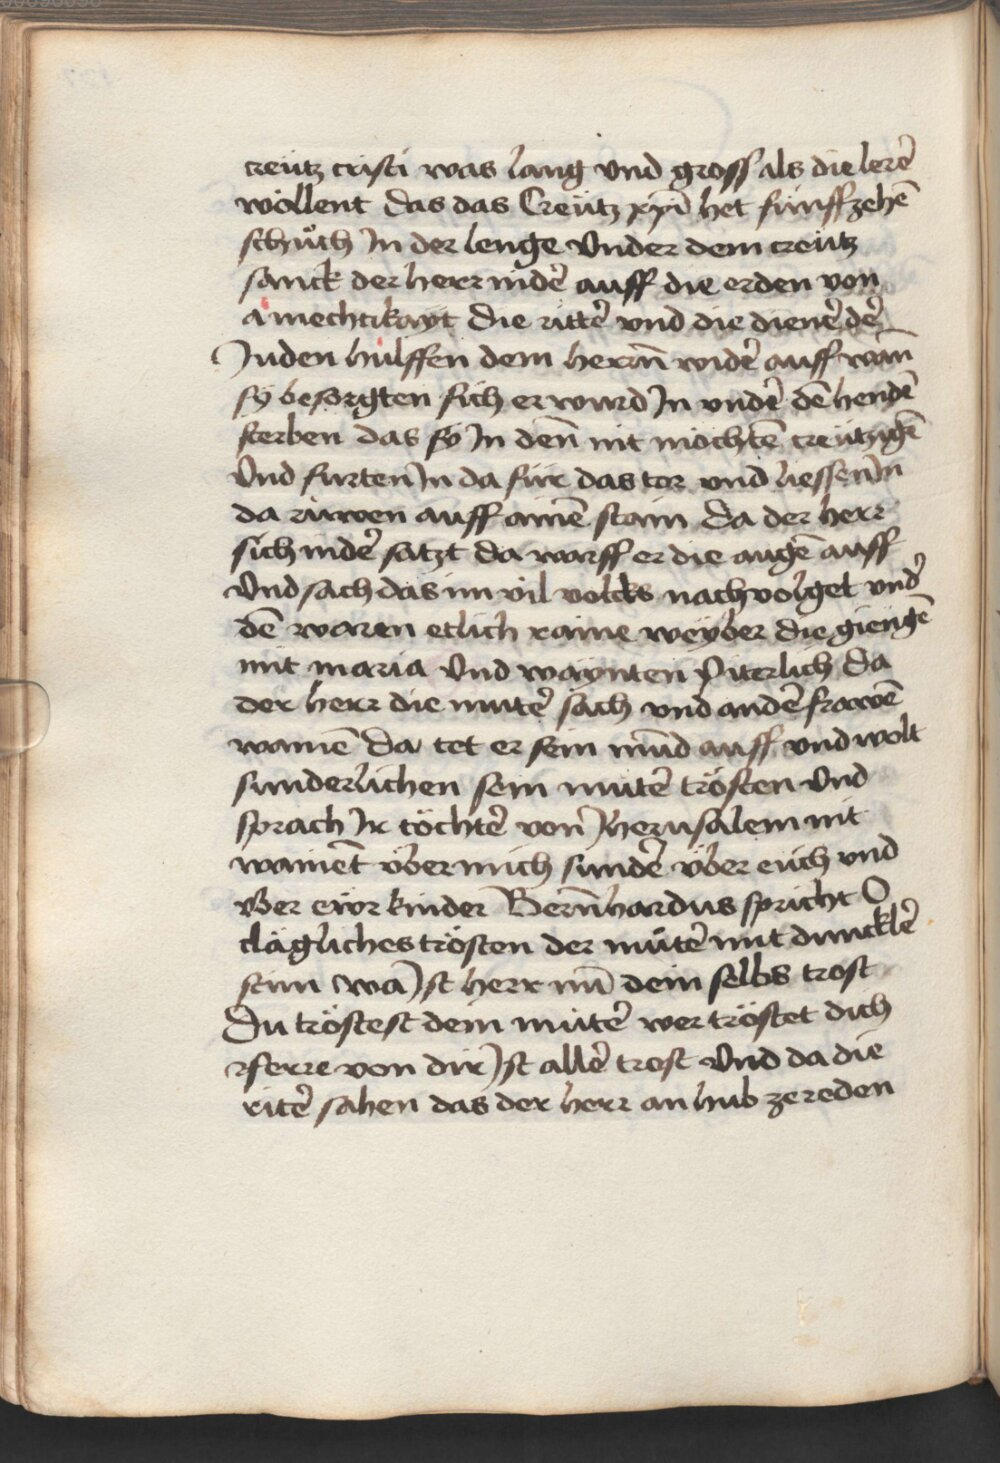 creütz cristi was lang vnd gross als die lerē
wöllent das das Creütz xpi̅ het fünffzehē
schůch Jn der lenge Vnder dem creütz
sanck der herr nidē auff die erden von
amechtikayt Die rittē vnd die dienē dē
Juden hulffen dem herrn̄ widē auff wan̄
sÿ besorgten sich er wurd Jn vndē dē hendē
sterben das sÿ Jn den̄ nit möchtē creützigē
Vnd furten Jn da für das tor vnd liessen Jn
da růwen auff ainē stain Da der herr
sich nidē satzt da warff er die augē auff
Vnd sach das im vil volcks nachvolget vndē
dē waren etlich raine weyber die giengē
mit maria Vnd waynten piterlich Da
der herr die mutē sach vnd andē frawē
wainē Da tet er sein mūd auff vnd wolt
sunderlichen sein mutē trösten Vnd
sprach Jr töchtē von Jherusalem nit
wainēt über mich sundē über eüch vnd
über ewr kinder Bern̄hardus spricht O
clägliches trösten der můtē mit duncklē
stim wa Jst herr nū dein selbs trost
Du tröstest dein mutē wer tröstet dich
verre von dir Jst allē trost Vnd da die
ritē sahen das der herr an hub ze reden